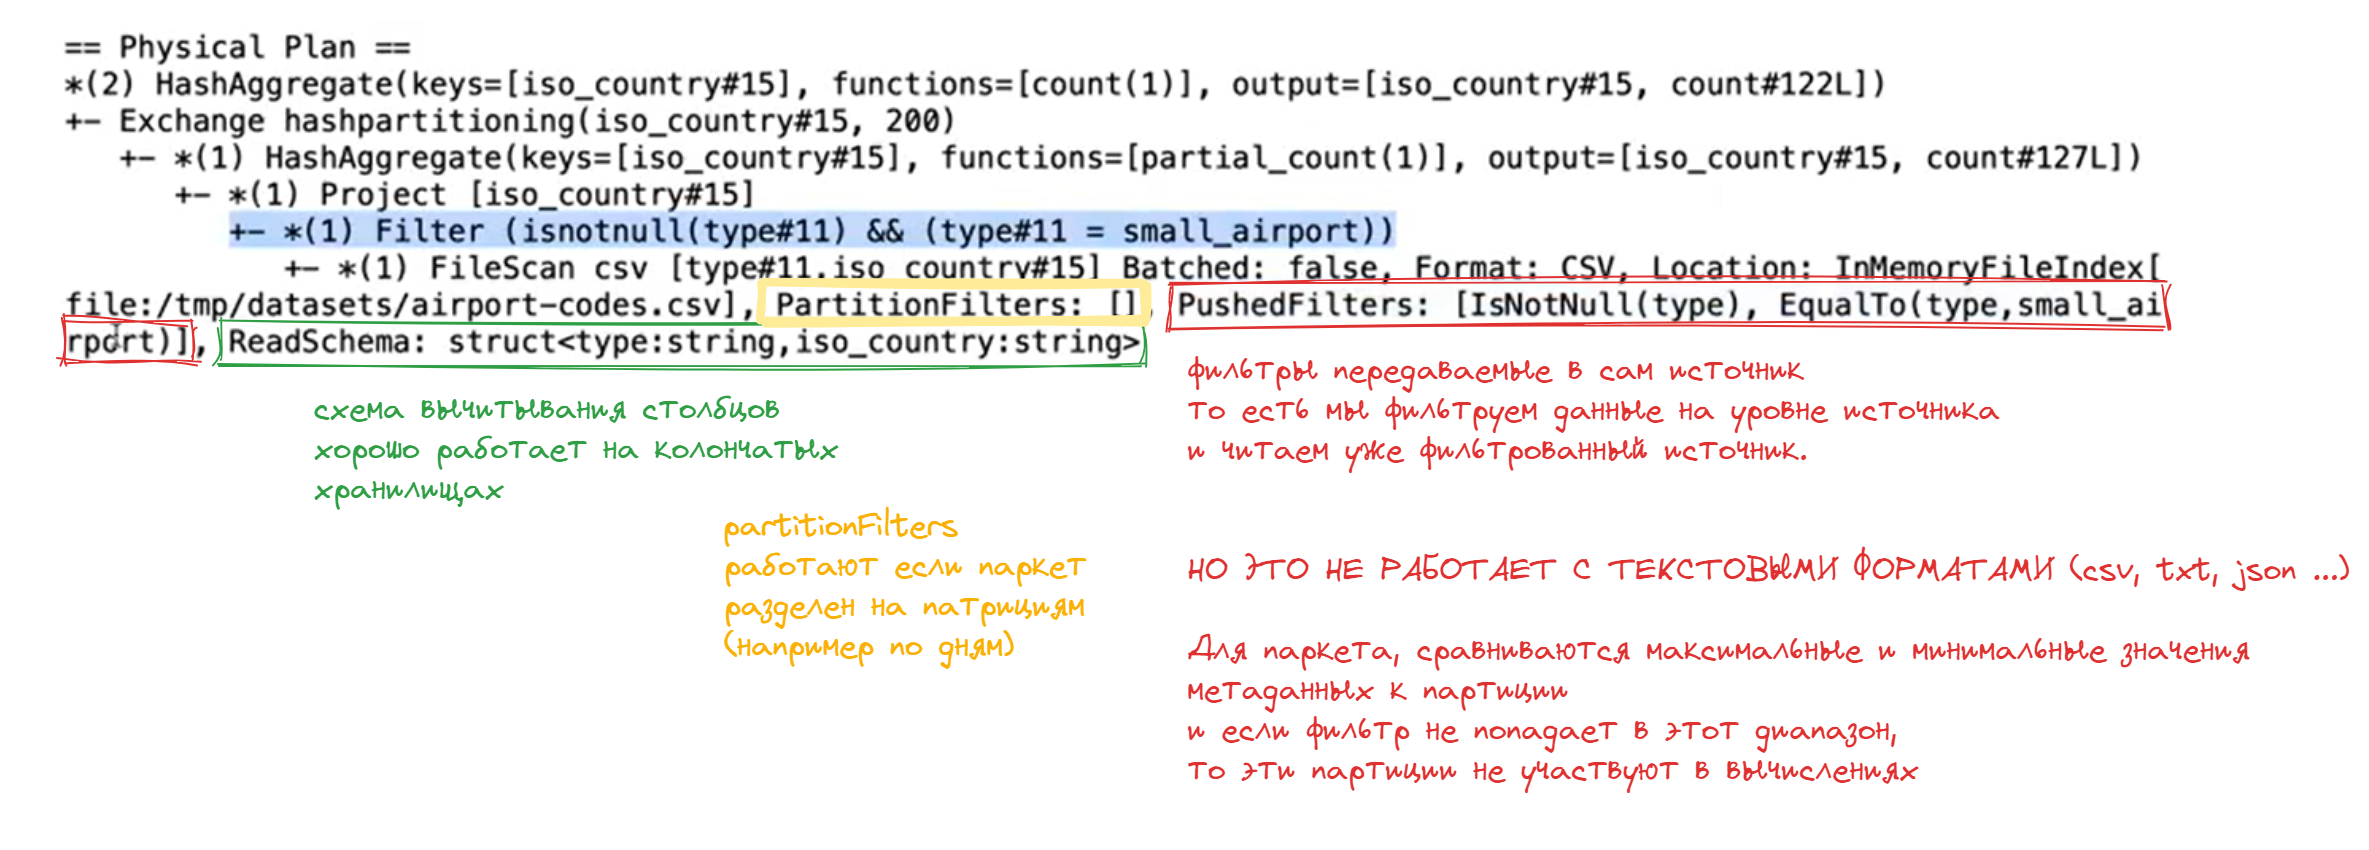 == Physical Plan ==
*(2) HashAggregate(keys=[iso_country#15], functions=[count(1)], output=[iso_country#15, count#122L])
+- Exchange hashpartitioning(iso_country#15, 200)
+- *(1) HashAggregate(keys=[iso_country#15], functions=[partial_count(1)], output=[iso_country#15, count#127L])
+- *(1) Project [iso_country#15]
+- *(1) Filter (isnotnull(type#11) && (type#11 = small_airport))
+- *(1) FileScan csv [type#11,iso_country#15] Batched: false, Format: CSV, Location: InMemoryFileIndex[
file:/tmp/datasets/airport-codes.csv], PartitionFilters: [], PushedFilters: [IsNotNull(type), EqualTo(type,small_ai
rport)], ReadSchema: struct<type:string,iso_country:string>
схема вычитывания столбцов
хорошо работает на колончатых
хранилищах
partitionFilters
работают если паркет
разделен на патрициям
(например по дням)
фильтры передаваемые в сам источник
то есть мы фильтруем данные на уровне источника
и читаем уже фильтрованный источник.
НО ЭТО НЕ РАБОТАЕТ С ТЕКСТОВЫМИ ФОРМАТАМИ (csv, txt, json ...)
Для паркета, сравниваются максимальные и минимальные значения
метаданных к партиции
и если фильтр не попадает в этот диапазон,
то эти партиции не участвуют в вычислениях